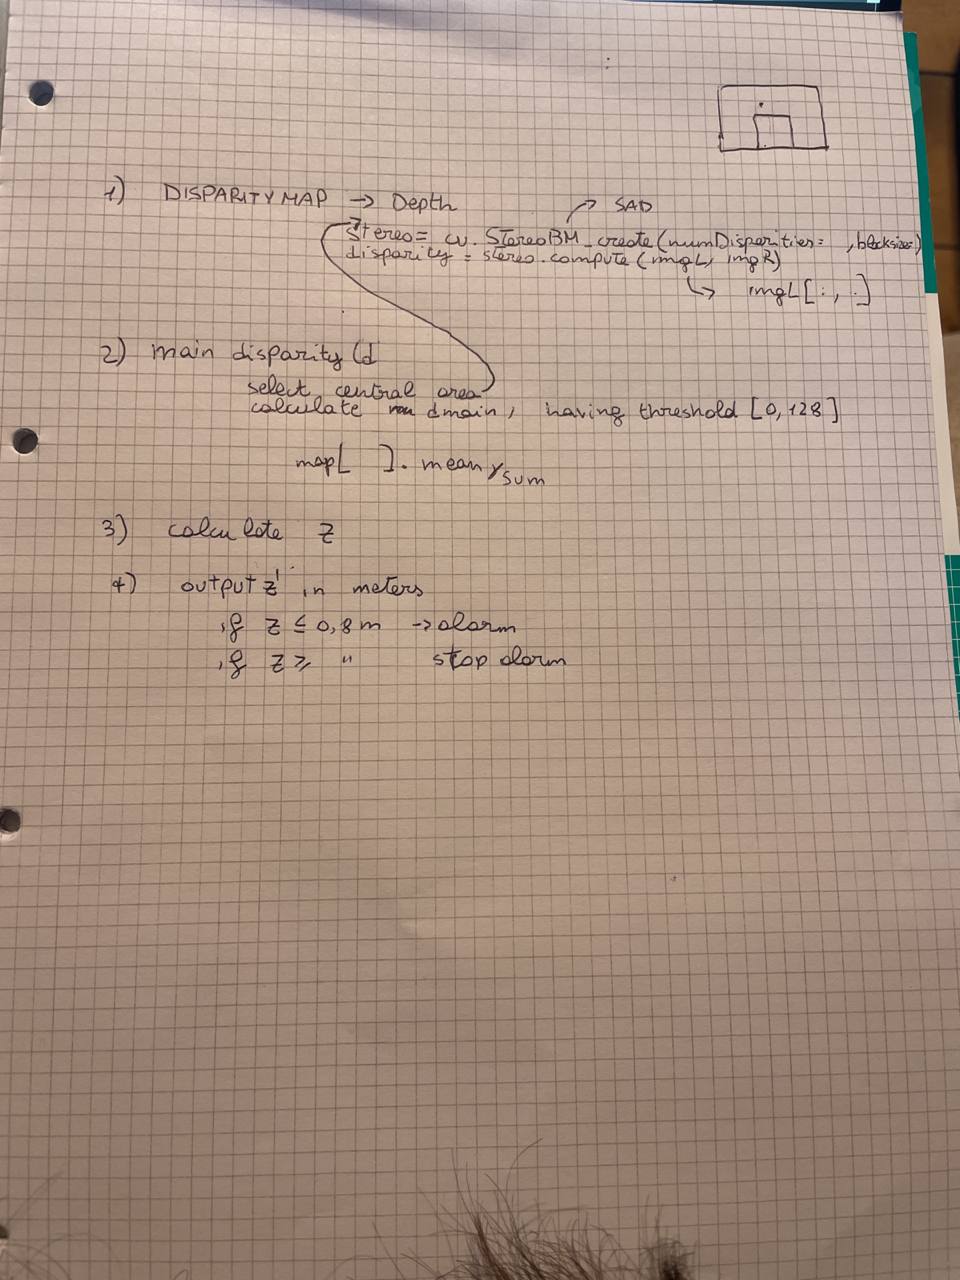 1) DISPARITY MAP → Depth
→ SAD
stereo = cv.StereoBM_create(numDisparities= , blocksize=)
disparity = stereo.compute(imgL, imgR)
↳ imgL[:, :]
2) main disparity (d
select central area
calculate dmain, having threshold [0,128]
map[ ]. mean, sum
3) calculate z
4) output z in meters
if z ≤ 0,8 m → alarm
if z ≥ " stop alarm